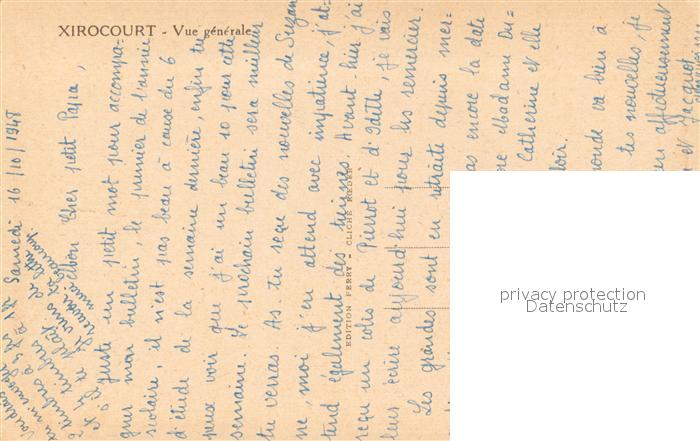 XIROCOURT - Vue générale
Samedi 16/10/1948
Mon Cher petit Papa,
Juste un petit mot pour accompa-
gner mon bulletin, le premier de l'année
scolaire, il n'est pas beau à cause du 6
d'étude de la semaine dernière, enfin tu
peux voir que j'ai un beau 10 pour cette
semaine. Le prochain bulletin sera meilleur
tu verras. As tu reçu des nouvelles de Suzan
ne, moi j'en attend avec impatience, j'at-
tend également des tiennes. Avant-hier j'ai
reçu un colis de Pierrot et d'Odette, je vais
leur écrire aujourd'hui pour les remercier.
Les grandes sont en retraite depuis mer=
as encore la date
Madame Du=
Catherine et elle
oir.
monde va bien à
tes nouvelles, je
affectueusement
et Jacquot
Voudrais
tu m'envoyer
timbres à
timbres à
s.t. plaît
EDITION FERRY - CLICHÉ RŒDER
privacy protection
Datenschutz